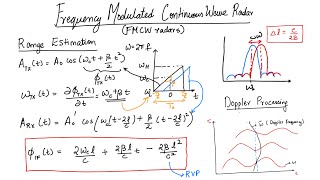 Frequency Modulated Continuous Wave Radar
(FMCW radars)
Range Estimation
ω=2πf
A_Tx(t) = A_o cos(ω_c t + β/2 t²)
ϕ_Tx(t)
ω_Tx(t) = ∂ϕ_Tx(t)/∂t = ω_c + βt
A_Rx(t) = A_o' cos(ω_c(t-2l/c) + β/2 (t-2l/c)²)
ϕ_IF(t) = 2ω_c l/c + 2βl/c t - 2βl²/c²
RVP
Δl = c/2B
Doppler Processing
(Doppler Frequency)